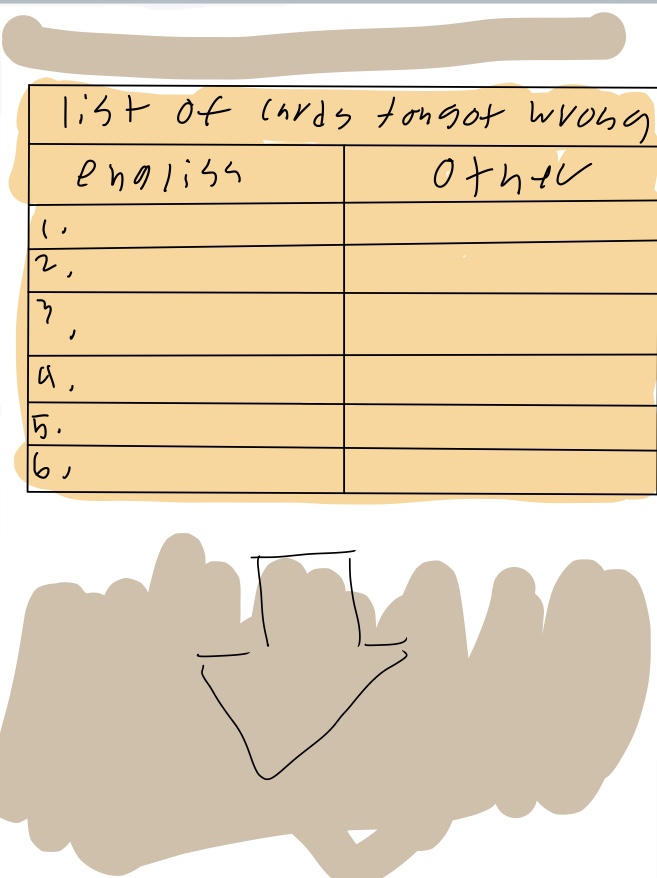 list of cards tongot wrong
engliss Other
1.
2,
3,
4,
5.
6,